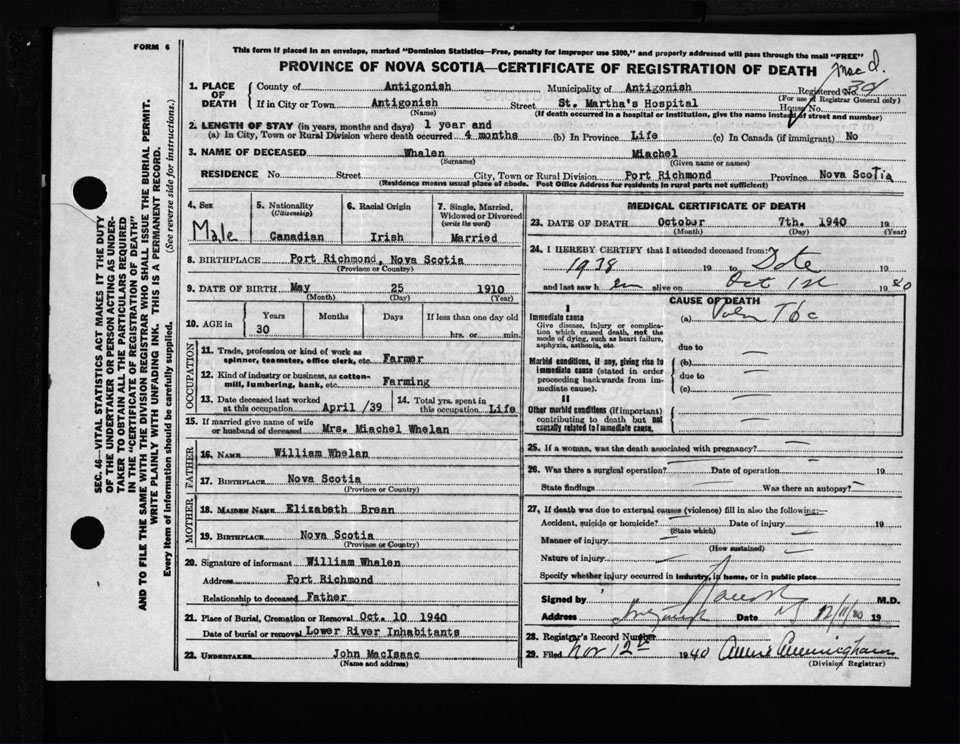 FORM 6
This form if placed in an envelope, marked "Dominion Statistics—Free, penalty for improper use $300," and properly addressed will pass through the mail "FREE"
PROVINCE OF NOVA SCOTIA—CERTIFICATE OF REGISTRATION OF DEATH
1. PLACE OF DEATH
County of Antigonish Municipality of Antigonish Registered No. 38
(For use of Registrar General only)
If in City or Town Antigonish Street St. Martha's Hospital House No.
(Name) (If death occurred in a hospital or institution, give the name instead of street and number)
2. LENGTH OF STAY (in years, months and days) 1 year and
(a) In City, Town or Rural Division where death occurred 4 months (b) In Province Life (c) In Canada (if immigrant) No
3. NAME OF DECEASED Whalen Miachel
(Surname) (Given name or names)
RESIDENCE No. Street City, Town or Rural Division Port Richmond Province Nova Scotia
(Residence means usual place of abode. Post Office Address for residents in rural parts not sufficient)
4. Sex Male
5. Nationality (Citizenship) Canadian
6. Racial Origin Irish
7. Single, Married, Widowed or Divorced (write the word) Married
8. BIRTHPLACE Port Richmond, Nova Scotia
(Province or Country)
9. DATE OF BIRTH May 25 1910
(Month) (Day) (Year)
10. AGE in Years Months Days If less than one day old
30 hrs. or min.
OCCUPATION
11. Trade, profession or kind of work as spinner, teamster, office clerk, etc. Farmer
12. Kind of industry or business, as cotton-mill, lumbering, bank, etc. Farming
13. Date deceased last worked at this occupation April /39
14. Total yrs. spent in this occupation Life
15. If married give name of wife or husband of deceased Mrs. Miachel Whelan
FATHER
16. NAME William Whelan
17. BIRTHPLACE Nova Scotia
(Province or Country)
MOTHER
18. MAIDEN NAME Elizabeth Brean
19. BIRTHPLACE Nova Scotia
(Province or Country)
20. Signature of informant William Whalen
Address Port Richmond
Relationship to deceased Father
21. Place of Burial, Cremation or Removal Oct. 10 1940
Date of burial or removal Lower River Inhabitants
22. UNDERTAKER John MacIsaac
(Name and address)
MEDICAL CERTIFICATE OF DEATH
23. DATE OF DEATH October 7th. 1940 19
(Month) (Day) (Year)
24. I HEREBY CERTIFY that I attended deceased from:
1938 19 to Date 19
and last saw h im alive on Oct 1st 1940
CAUSE OF DEATH
I
Immediate cause
Give disease, injury or complication which caused death, not the mode of dying, such as heart failure, asphyxia, asthenia, etc.
(a) Tbc
due to —
Morbid conditions, if any, giving rise to immediate cause (stated in order proceeding backwards from immediate cause).
(b) —
due to —
(c) —
II
Other morbid conditions (if important) contributing to death but not causally related to immediate cause.
25. If a woman, was the death associated with pregnancy? —
26. Was there a surgical operation? — Date of operation — 19
State findings — Was there an autopsy? —
27. If death was due to external causes (violence) fill in also the following:—
Accident, suicide or homicide? Date of injury 19
(State which)
Manner of injury
(How sustained)
Nature of injury
Specify whether injury occurred in industry, in home, or in public place
Signed by M.D.
Address Date 12/11/40 19
28. Registrar's Record Number
29. Filed Nov 12th 1940 Annie Cunningham
(Division Registrar)
SEC. 46—VITAL STATISTICS ACT MAKES IT THE DUTY
OF THE UNDERTAKER OR PERSON ACTING AS UNDER-
TAKER TO OBTAIN ALL THE PARTICULARS REQUIRED
IN THE "CERTIFICATE OF REGISTRATION OF DEATH"
AND TO FILE THE SAME WITH THE DIVISION REGISTRAR WHO SHALL ISSUE THE BURIAL PERMIT.
WRITE PLAINLY WITH UNFADING INK. THIS IS A PERMANENT RECORD.
Every item of Information should be carefully supplied. (See reverse side for instructions.)